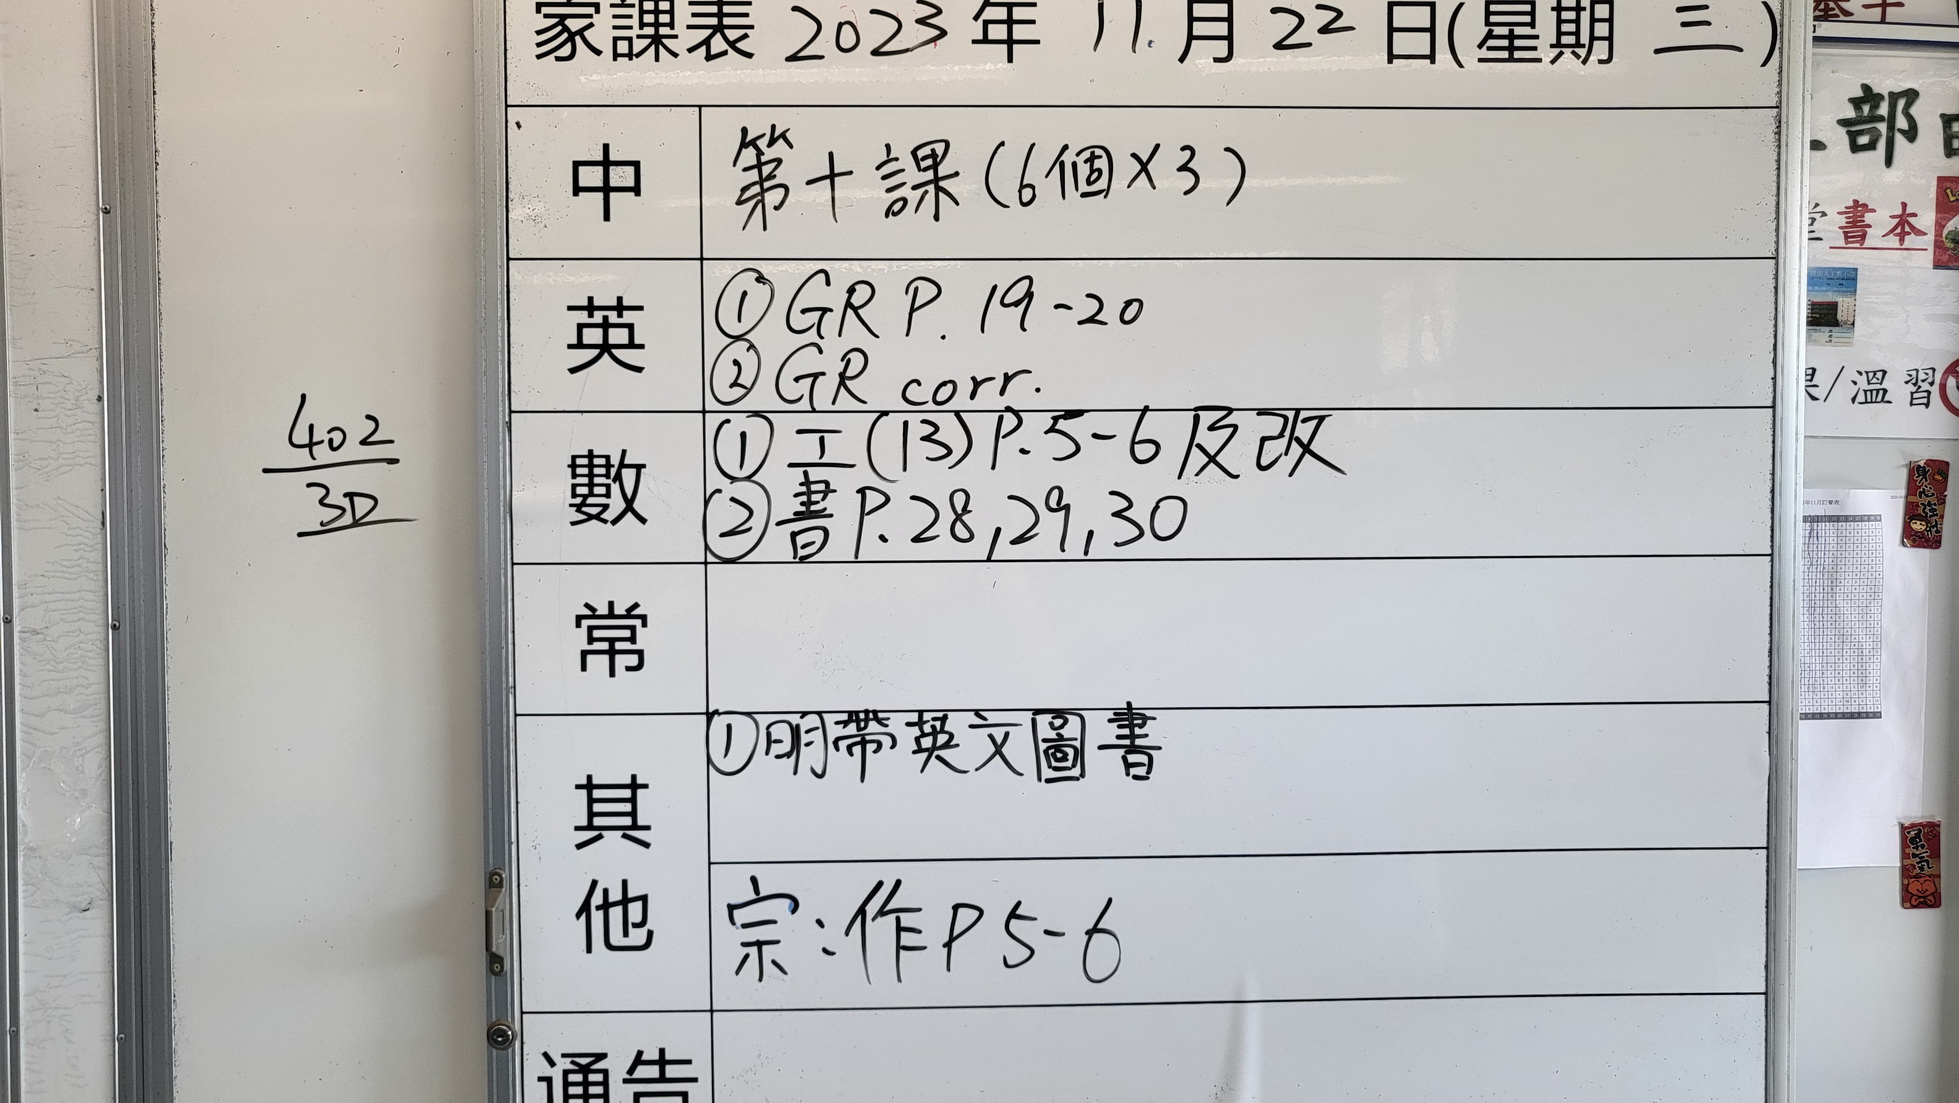 家課表 2023 年 11 月 22 日(星期 三)
402
3D
中
第十課(6個×3)
英
① GR P. 19-20
② GR corr.
數
① 工(13)P.5-6及改
② 書P.28,29,30
常
其他
①明帶英文圖書
宗:作P5-6
通告
部
書本
/溫習
身心
勇氣